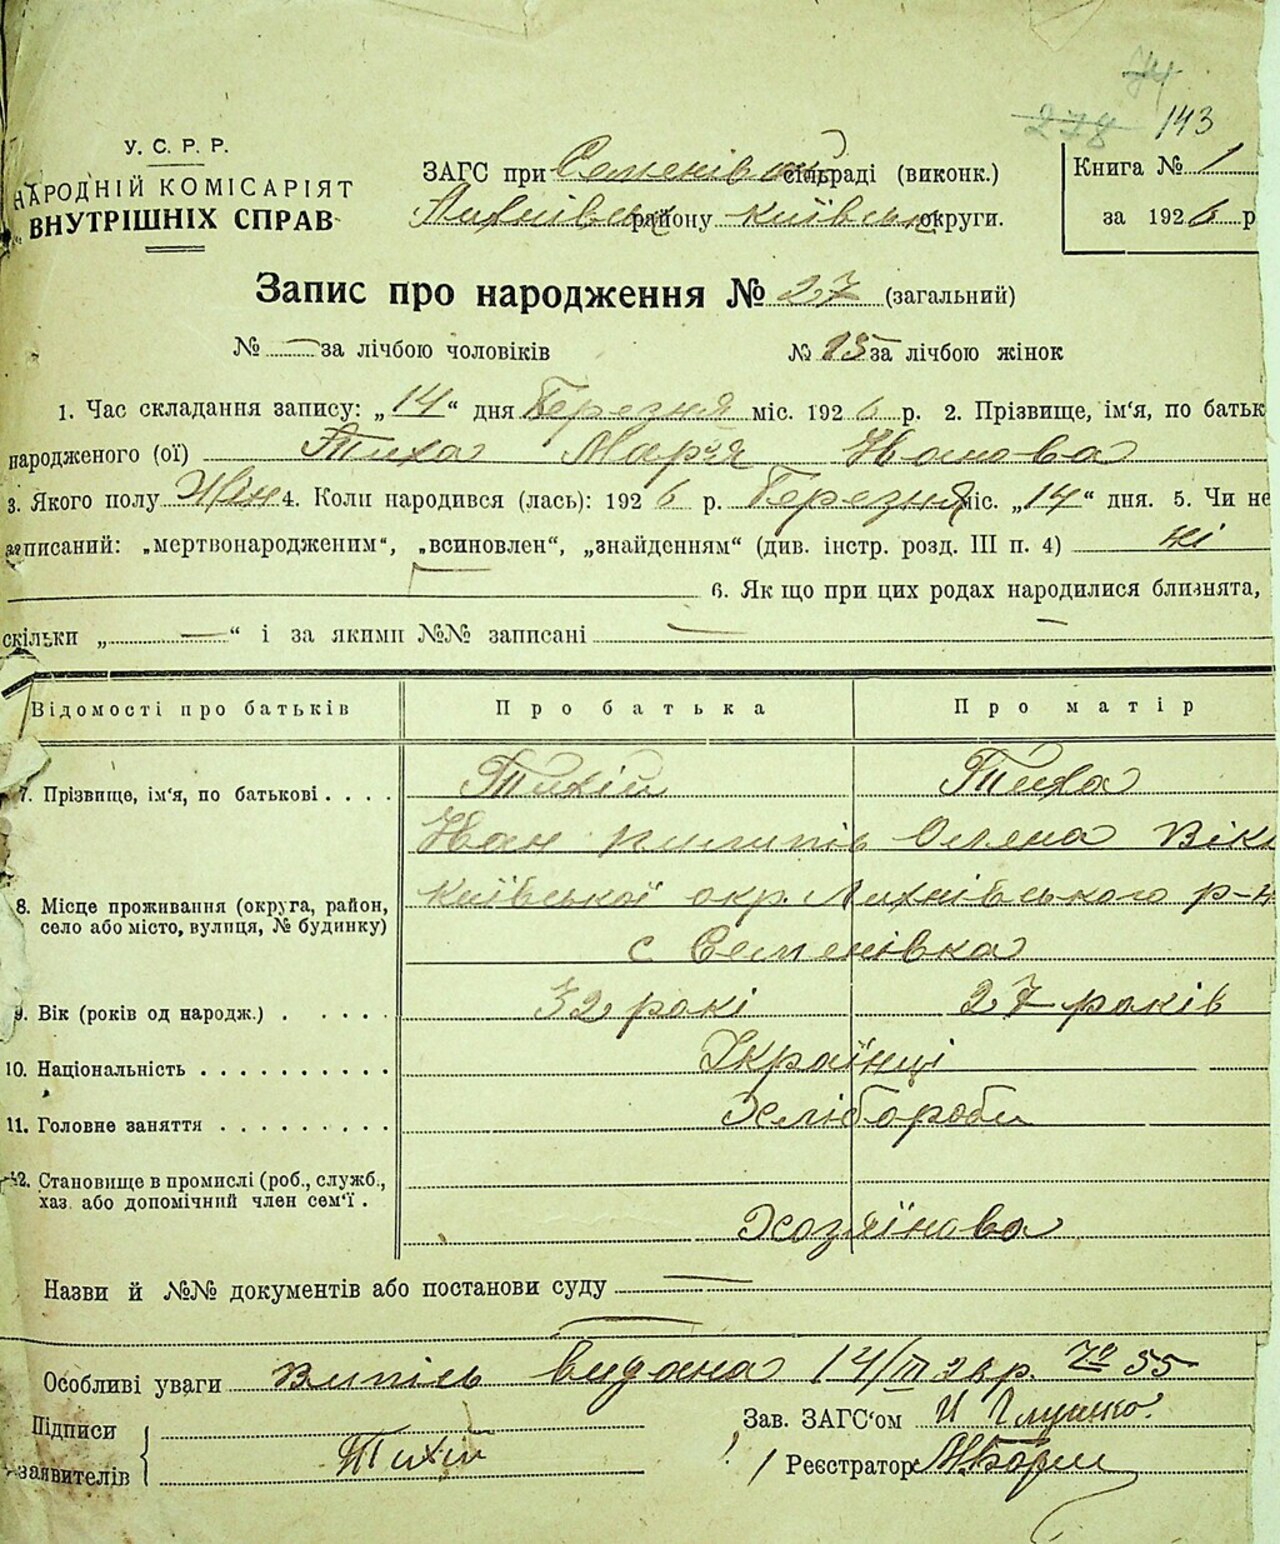 74
278 143
У. С. Р. Р.
НАРОДНІЙ КОМІСАРІЯТ
ВНУТРІШНІХ СПРАВ
ЗАГС при Семенівській сільраді (виконк.)
району Київськ округи.
Книга № 1
за 1926 р
Запис про народження № 27 (загальний)
№ — за лічбою чоловіків № 15 за лічбою жінок
1. Час складання запису: „14“ дня Березня міс. 1926 р. 2. Прізвище, ім‘я, по батьк
народженого (ої) Тиха Мар'я Іванова
3. Якого полу Жін 4. Коли народився (лась): 1926 р. Березня міс. „14“ дня. 5. Чи не
записаний: „мертвонародженим“, „всиновлен“, „знайденням“ (див. інстр. розд. III п. 4) ні
6. Як що при цих родах народилися близнята,
скільки „ — “ і за якими №№ записані —
Відомості про батьків Про батька Про матір
7. Прізвище, ім‘я, по батькові . . . . Тихій Тиха
Іван Пилипів Олена Вік
8. Місце проживання (округа, район, село або місто, вулиця, № будинку) Київської окр. Лихнівського р-н
с Семенівка
9. Вік (років од народж.) . . . . . 32 рокі 27 років
10. Національність . . . . . . . . . . Українці
11. Головне заняття . . . . . . . . . Хлібороби
12. Становище в промислі (роб., служб.,
хаз. або допомічний член сем‘ї .
Хозяїнова
Назви й №№ документів або постанови суду —
Особливі уваги Випись видана 14/III 26 р. № 55
Підписи
заявителів
Тихій
Зав. ЗАГС‘ом И Глущко.
Реєстратор